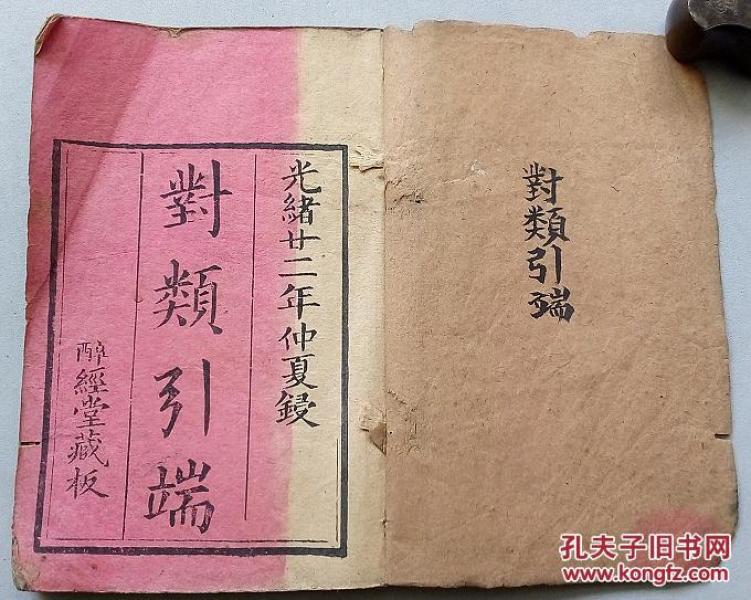 對類引端
光緒廿二年仲夏鋟
對類引端
醉經堂藏板
孔夫子旧书网
www.kongfz.com